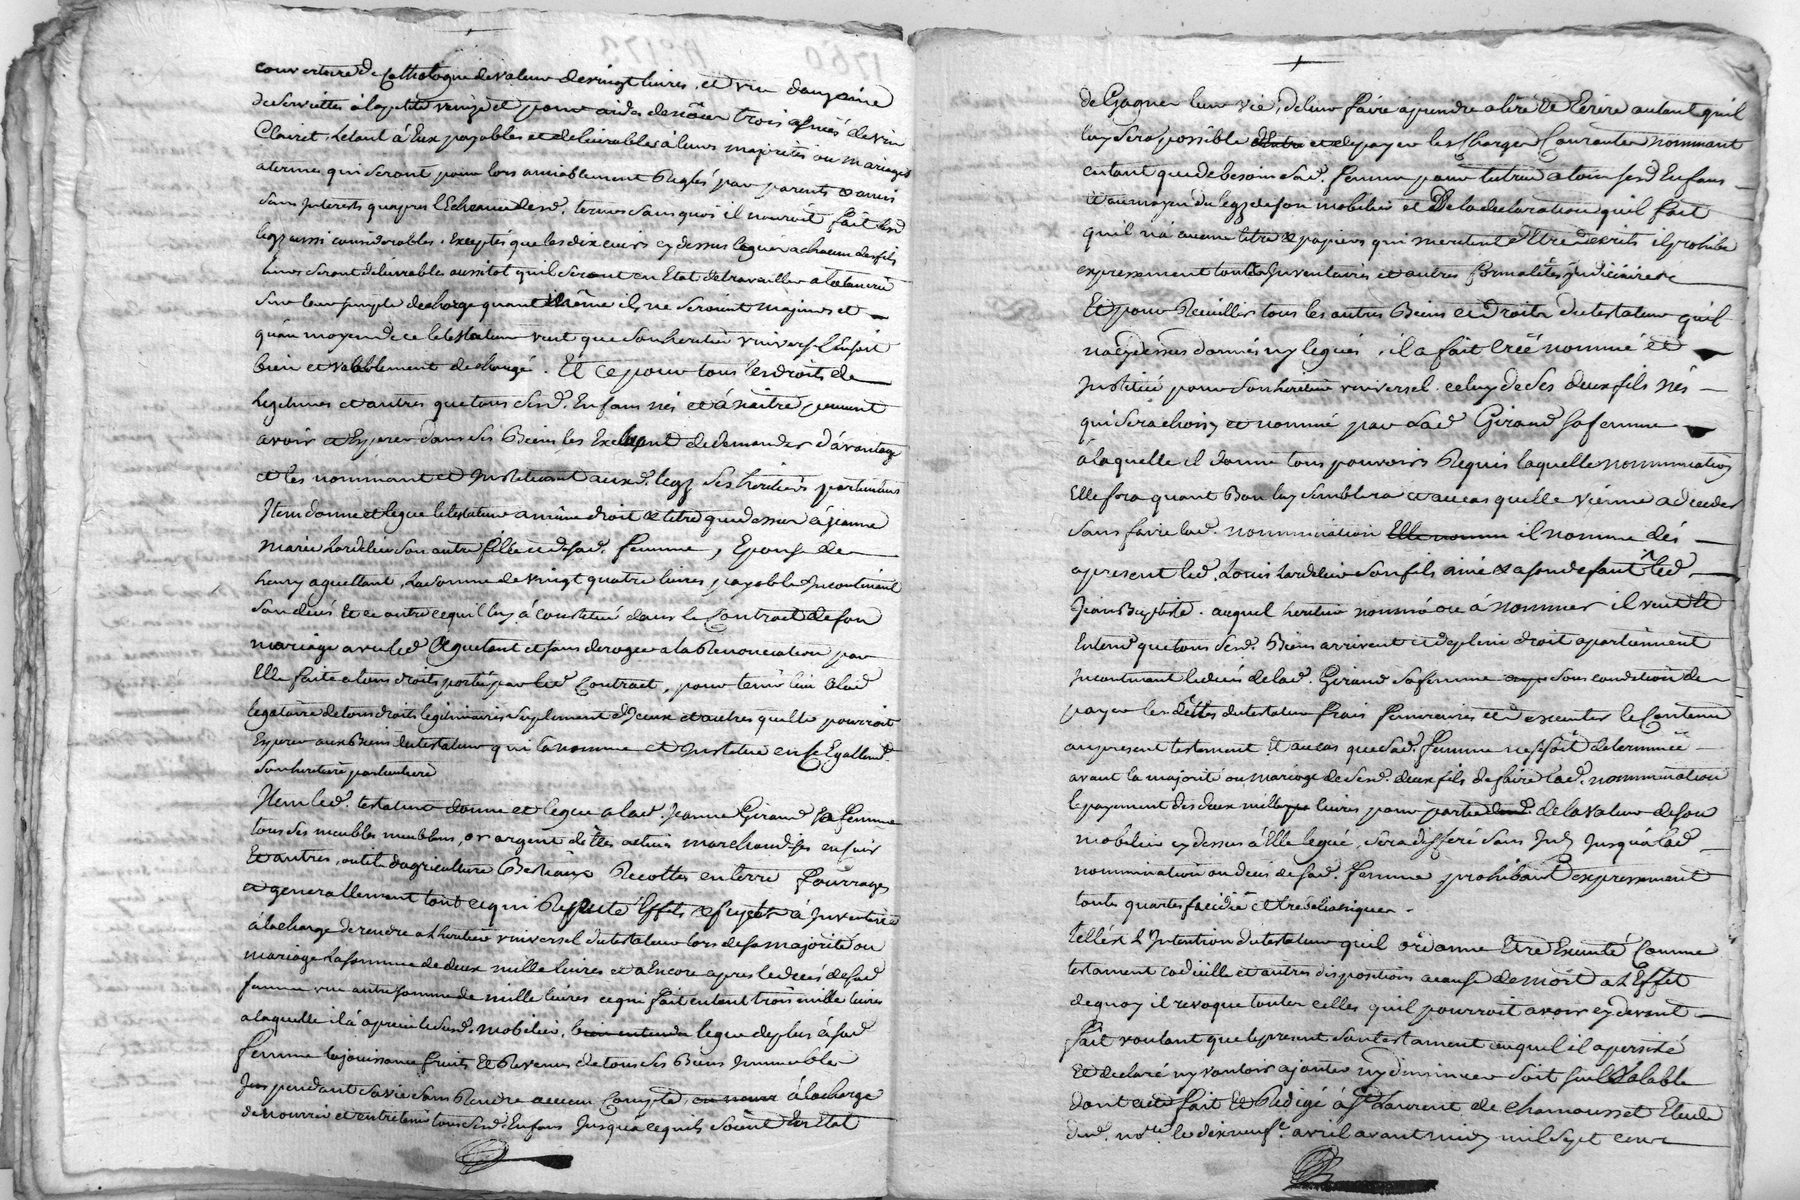 couverture de Cathalogne de valeur de vingt livres, et une douzaine
de serviettes à la petite venize et pour aide de nôces trois asnées de vin
Clairet, le tout à Eux payables et delivrables à leurs majorités ou mariages
a termes qui seront pour lors amiablement Reglés par parents et amis
sans Interests qu'apres l'Echeance desd. termes sans quoi il n'auroit fait lesd
legz aussi considerables. Exceptés que les dix cuirs cy dessus legués a chacun des fils
leurs seront delivrables aussitot qu'ils seront en Etat de travailler a la tannerie
sur leur simple decharge quand même ils ne seroient majeurs et
qu'au moyen de ce le testateur veut que son heritier univers. l En soit
bien et valablement dechargé. Et ce pour tous les droits de
legitimes et autres que tous sesd. Enfans nés et à naitre peuvent
avoir et Esperer dans ses Biens les Excluant de demander d'avantage
et les nommant et Instituant auxd. legz ses heritiers particuliers
Item donne et legue le testateur a même droit et titre que dessus à jeanne
marie hardelier son autre fille et de sad. femme, Epouse de
henry aguettant, la somme de vingt quatre livres, payable Incontinent
son decés Et ce outre ce qu'il luy à constitué dans le Contract de son
mariage avec led Aguetant et sans deroger a la Renonciation par
Elle faite a tous droits portés par led Contract, pour tenir lieu à lad
legataire de tous droits legitimaires suplement d'Iceux et autres qu'elle pourroit
Esperer aux Biens du testateur qui la nomme et Institue en ce Egallemt
son heritiere particuliere
Item led. testateur donne et legue a lad. Jeanne Giraud sa femme
tous ses meubles meublans, or argent dettes actives marchandises en cuir
Et autres, outils d'agriculture Bestiaux Recoltes en terre fourrages
et generallement tout ce qui Reputé Effets et sujets à Inventaire
à la charge de rendre a l'heritier universel du testateur lors de sa majorité ou
mariage la somme de deux mille livres et a Encore apres le decés de sad
femme une autre somme de mille livres ce qui fait en tout trois mille livres
a laquelle il à aprecié sesd. mobilier, bien entendu legue de plus à sad
femme la jouissance fruits Et Revenus de tous ses Biens Immeubles
Jus pendant sa vie sans Rendre aucun Compte, à la charge
de nourrir et entretenir tous sesd. Enfans Jusqu'a ce qu'ils soient En Etat
de Gagner leur vie, de leur faire aprendre a lire Et Ecrire autant qu'il
luy sera possible et de payer les Charges Courantes nommant
en tant que de besoin sad. femme pour tutrice a tous sesd Enfans
et au moyen du legz de son mobilier et De la declaration qu'il fait
qu'il n'a aucuns titres et papiers qui meritent d'Etre decrits il prohibe
expressement tous Inventaires et autres formalités judiciaires
Et pour Recueillir tous les autres Biens et droits du testateur qu'il
n'a cy dessus donnés ny legués, il a fait Créé nommé et
Institué pour son heritier universel celuy de ses deux fils nés
qui sera choisy et nommé par lad Giraud sa femme
à laquelle il donne tous pouvoirs Requis laquelle nommination
Elle fera quand Bon luy semblera et au cas qu'elle vienne a deceder
sans faire lad. nommination il nomme dés
apresent led. Louis hardelier son fils ainé et a son defaut led
Jean Baptiste. auquel heritier nommé ou à nommer il veut et
Entend que tous sesd. Biens arrivent et de plein droit apartiennent
Incontinant le decés de lad. Giraud sa femme sous condition de
payer les dettes du testateur frais funeraires et d'executer le Contenu
au present testament Et au cas que sad. femme ne se soit determinée
avant la majorité ou mariage de sesd. deux fils de faire lad. nommination
le payement des deux mille livres pour partie de la valeur de son
mobilier cy dessus à Elle legué, sera differé sans Int. Jusqu'à lad
nommination ou decés de sad. femme prohibant expressement
toutes quartes falcidie et trebellianiques.
telle est l'Intention du testateur qu'il ordonne Etre Executé Comme
testament codicille et autres dispositions a cause de mort a l'Effet
de quoy il revoque toutes celles qu'il pourroit avoir cy devant
fait voulant que le present son testament auquel il a persisté
Et declaré ny vouloir ajouter ny diminuer soit seul valable
dont acte fait Et Redigé à St Laurent de chamousset Etude
dud. nore. le dix neuf. avril avant midy mil sept cent